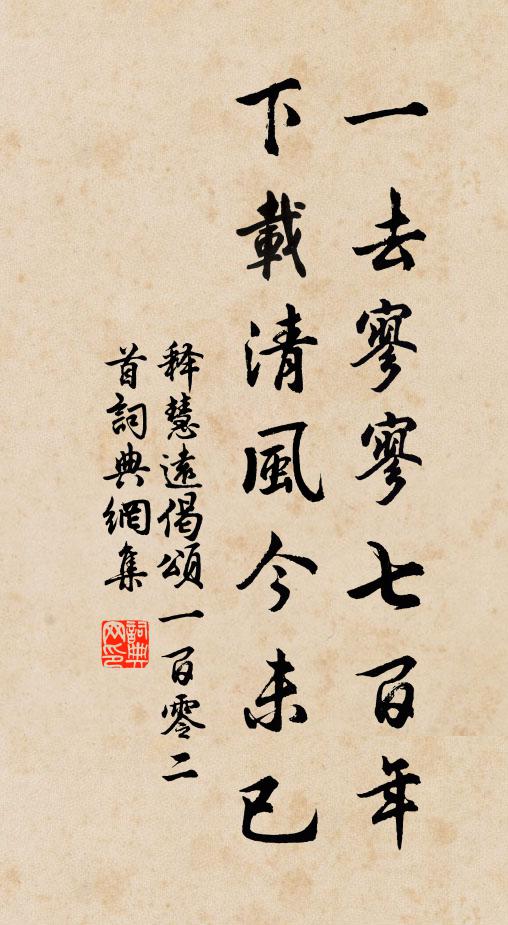 一去寥寥七百年
下載清風今未已
釋慧遠偈頌一百零二
首詞典網集
詞典網印